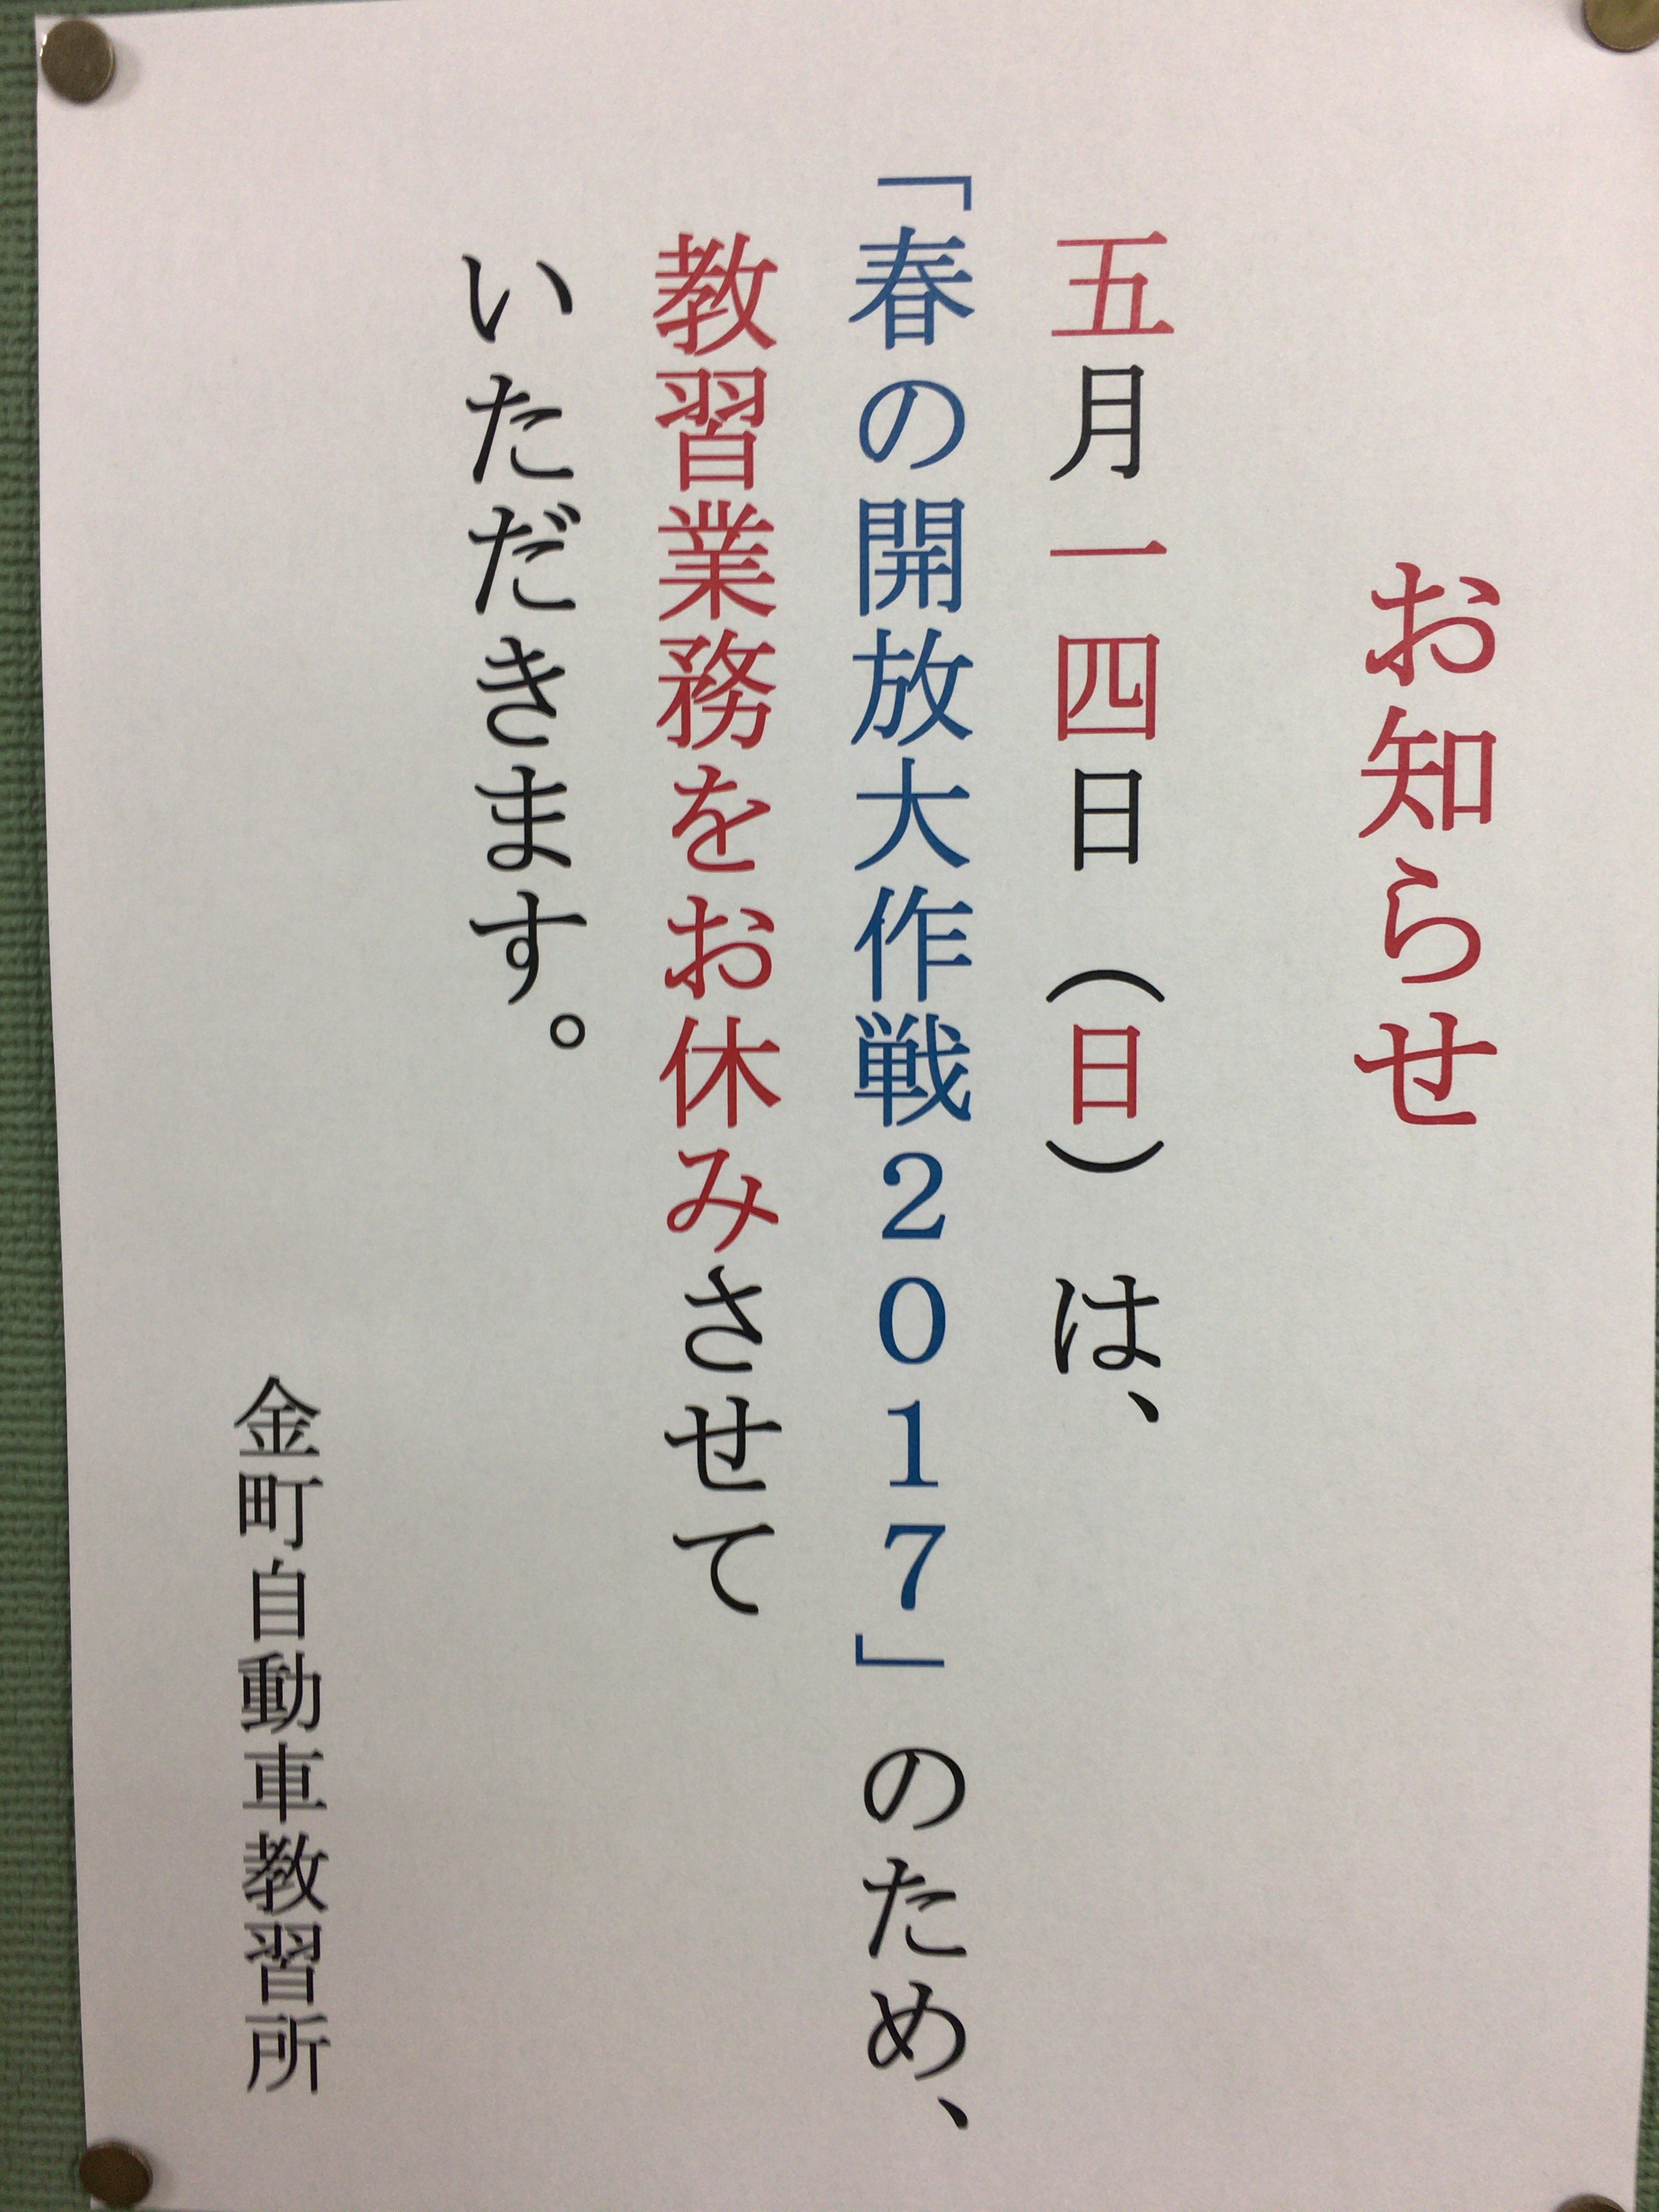 お知らせ
五月一四日（日）は、
「春の開放大作戦２０１７」のため、
教習業務をお休みさせて
いただきます。
金町自動車教習所